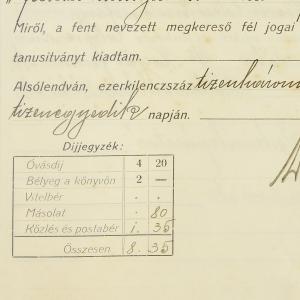 Miről, a fent nevezett megkereső fél jogai
tanusítványt kiadtam.
Alsólendván, ezerkilenczszáz tizenhárom
tizenegyedik napján.
Díjjegyzék:
Óvásdíj 4 20
Bélyeg a könyvön 2 —
Vitelbér . .
Másolat . 80
Közlés és postabér 1. 35
Összesen 8. 35